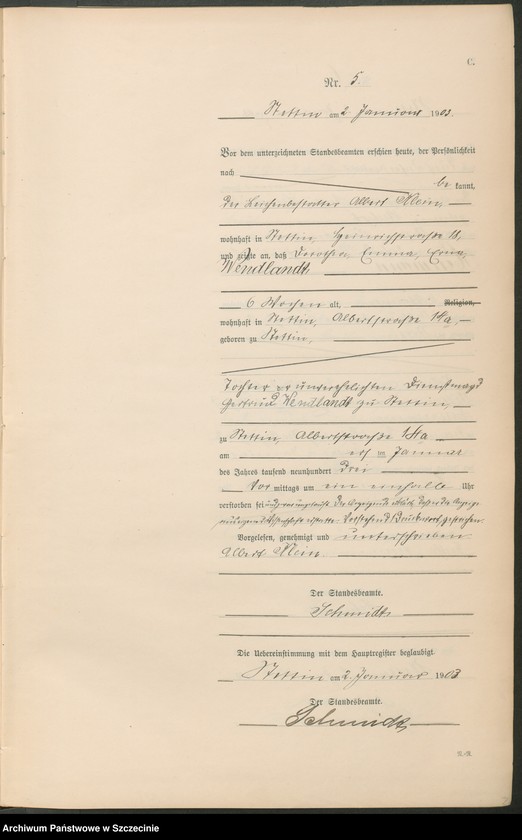 C.
Nr. 5.
Stettin am 2. Januar 1903.
Vor dem unterzeichneten Standesbeamten erschien heute, der Persönlichkeit
nach
be kannt,
der Leichenbestatter Albert Klein,
wohnhaft in Stettin, Heinrichstraße
und zeigte an, daß Dorothea Emma Erna
Wendlandt
6 Wochen alt, Religion,
wohnhaft in Stettin, Albertstraße
geboren zu Stettin,
Tochter der unverehelichten Dienstmagd
Gertrud Wendlandt zu Stettin,
zu Stettin, Albertstraße
am im Januar
des Jahres tausend neunhundert drei
Vor mittags um ein einhalb Uhr
verstorben sei
Vorgelesen, genehmigt und unterschrieben
Albert Klein
Der Standesbeamte.
Schmidt
Die Uebereinstimmung mit dem Hauptregister beglaubigt.
Stettin am 2. Januar 1903.
Der Standesbeamte.
Schmidt
Archiwum Państwowe w Szczecinie